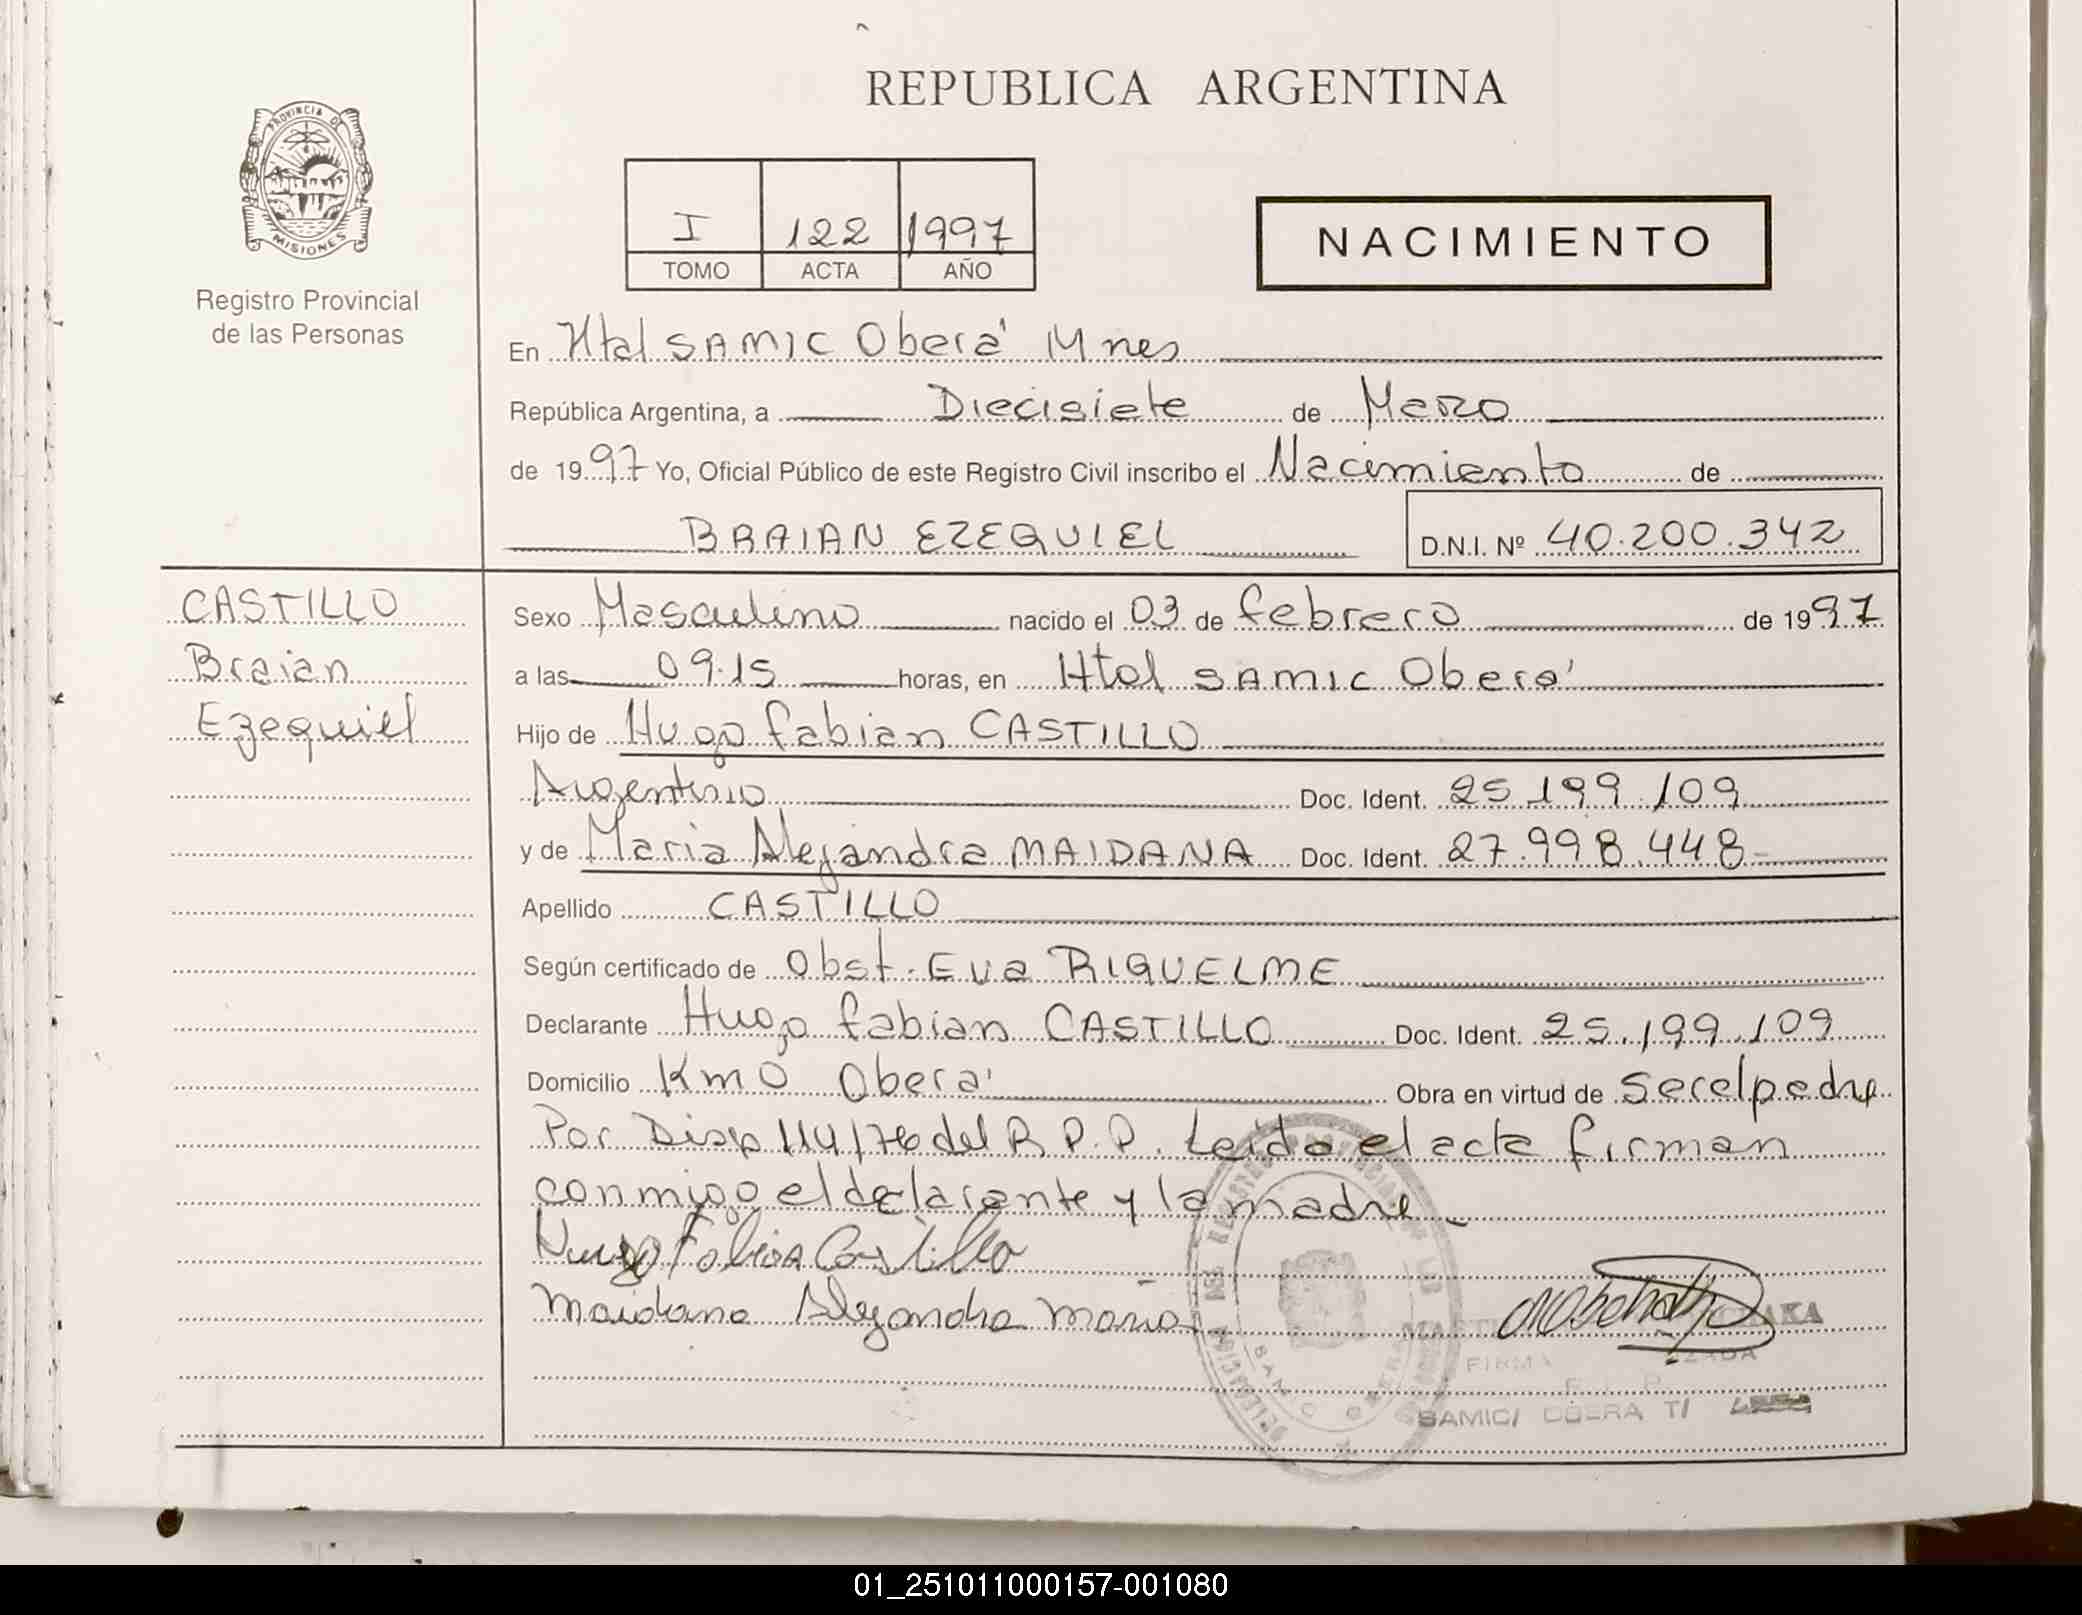 REPUBLICA ARGENTINA
PROVINCIA DE
MISIONES
Registro Provincial
de las Personas
I 122 1997
TOMO ACTA AÑO
NACIMIENTO
En Htal SAMIC Oberá Mnes
República Argentina, a Diecisiete de Marzo
de 1997 Yo, Oficial Público de este Registro Civil inscribo el Nacimiento de
BRAIAN EZEQUIEL D.N.I. Nº 40.200.342
CASTILLO
Braian
Ezequiel
Sexo Masculino nacido el 03 de febrero de 1997
a las 09.15 horas, en Htal SAMIC Oberá
Hijo de Hugo fabian CASTILLO
Argentino Doc. Ident. 25.199.109
y de Maria Alejandra MAIDANA Doc. Ident. 27.998.448-
Apellido CASTILLO
Según certificado de Obst. Eva RIQUELME
Declarante Hugo fabian CASTILLO Doc. Ident. 25.199.109
Domicilio Km 0 Oberá Obra en virtud de Ser el padre
Por Disp 114/76 del R.P.P. Leída el acta firman
conmigo el declarante y la madre
Hugo Fabian Castillo
Maidana Alejandra Maria
FIRMA
SAMIC/ OBERA T/
01_251011000157-001080